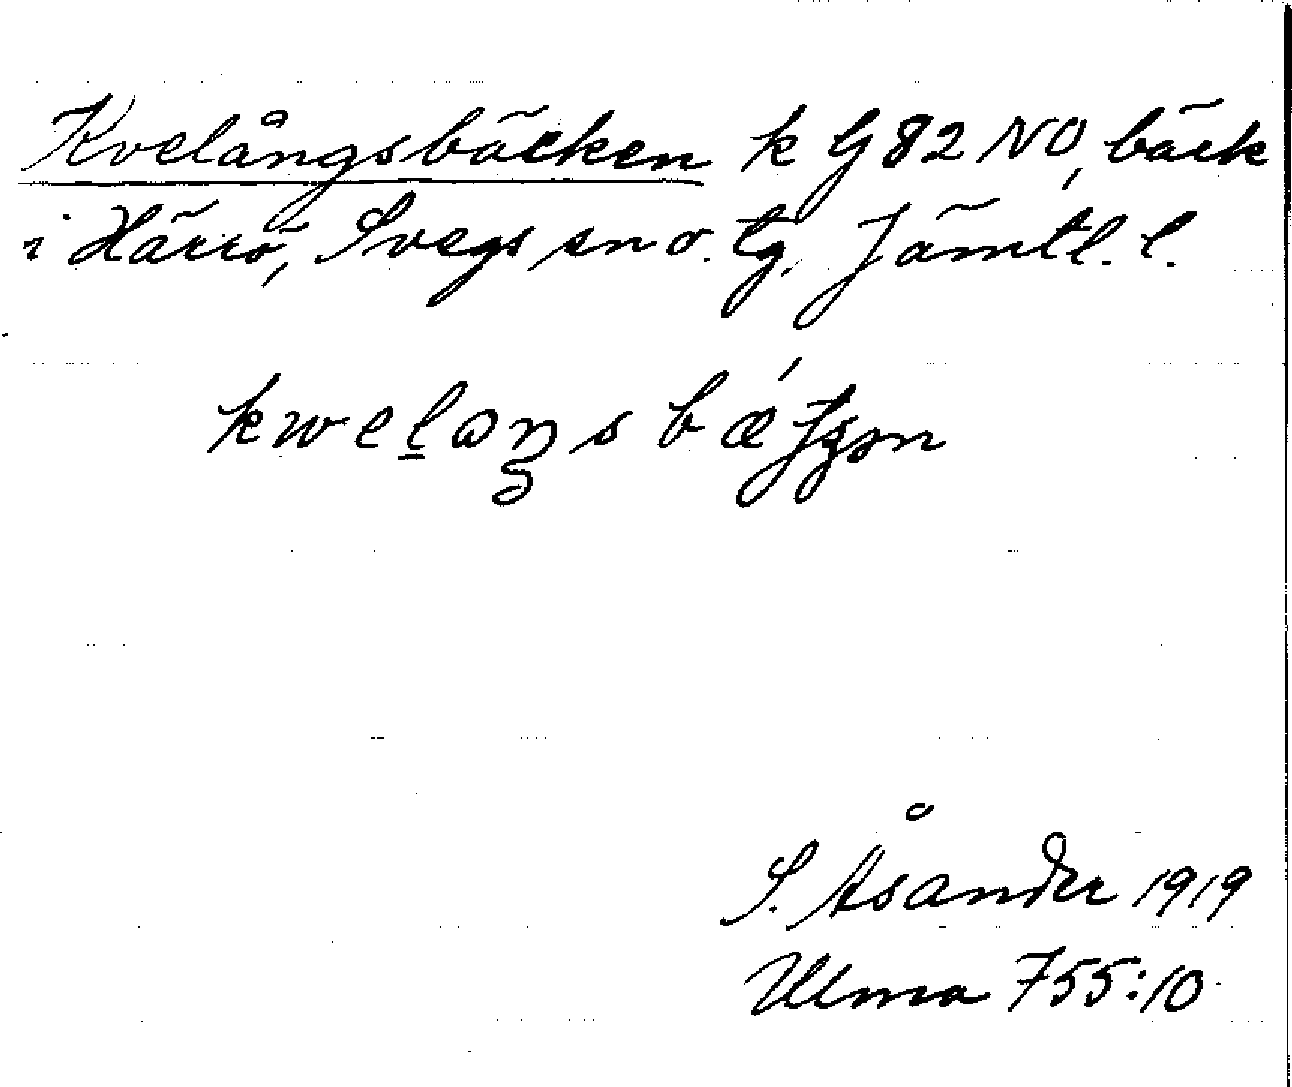 Kvelångsbäcken k G 82 NO, bäck
i Härrö, Svegs sn o. tg, Jämtl. l.
S. Åsander 1919
Ulma 755:10